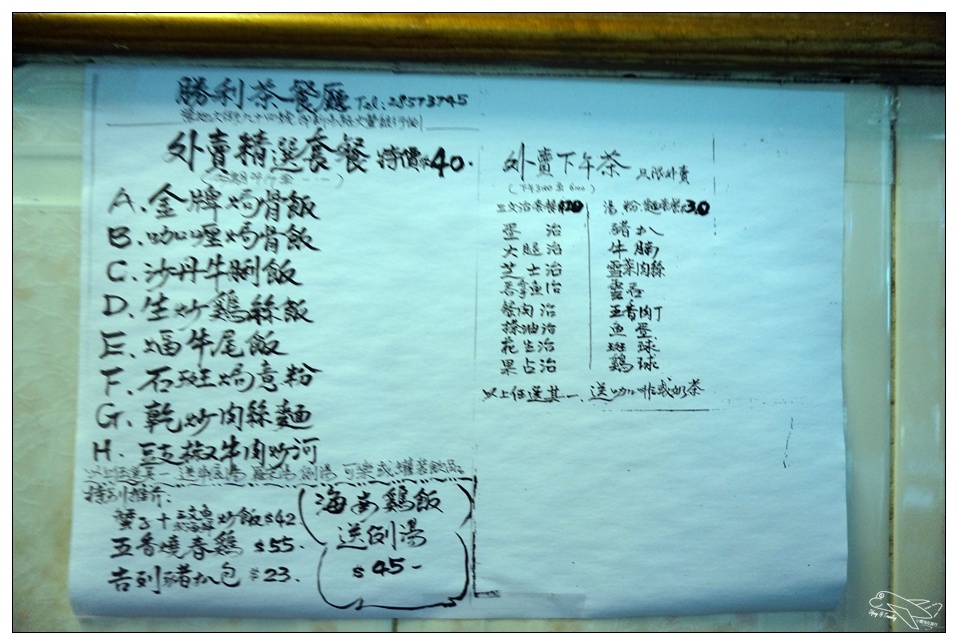 勝利茶餐廳 Tel: 28573745
外賣精選套餐 特價$40.
A.金牌焗骨飯
B.咖喱焗骨飯
C.沙丹牛脷飯
D.生炒鷄絲飯
E.煏牛尾飯
F.石斑焗意粉
G.乾炒肉絲麵
H.豉椒牛肉炒河
以上任選其一
可樂或罐裝飲品
特別推介:
蟹子+炒飯$42
五香燒春鷄 $55.
告到豬扒包 $23.
海南鷄飯
送例湯
$45-
外賣下午茶 只限外賣
(下午3:00至6:00)
三文治套餐$20
蛋 治
大腿治
芝士治
吞拿魚治
餐肉治
搽油治
花生治
果占治
湯、粉、麵套餐$30
豬扒
牛腩
雪菜肉絲
五香肉丁
魚蛋
斑球
鷄球
以上任選其一、送咖啡或奶茶